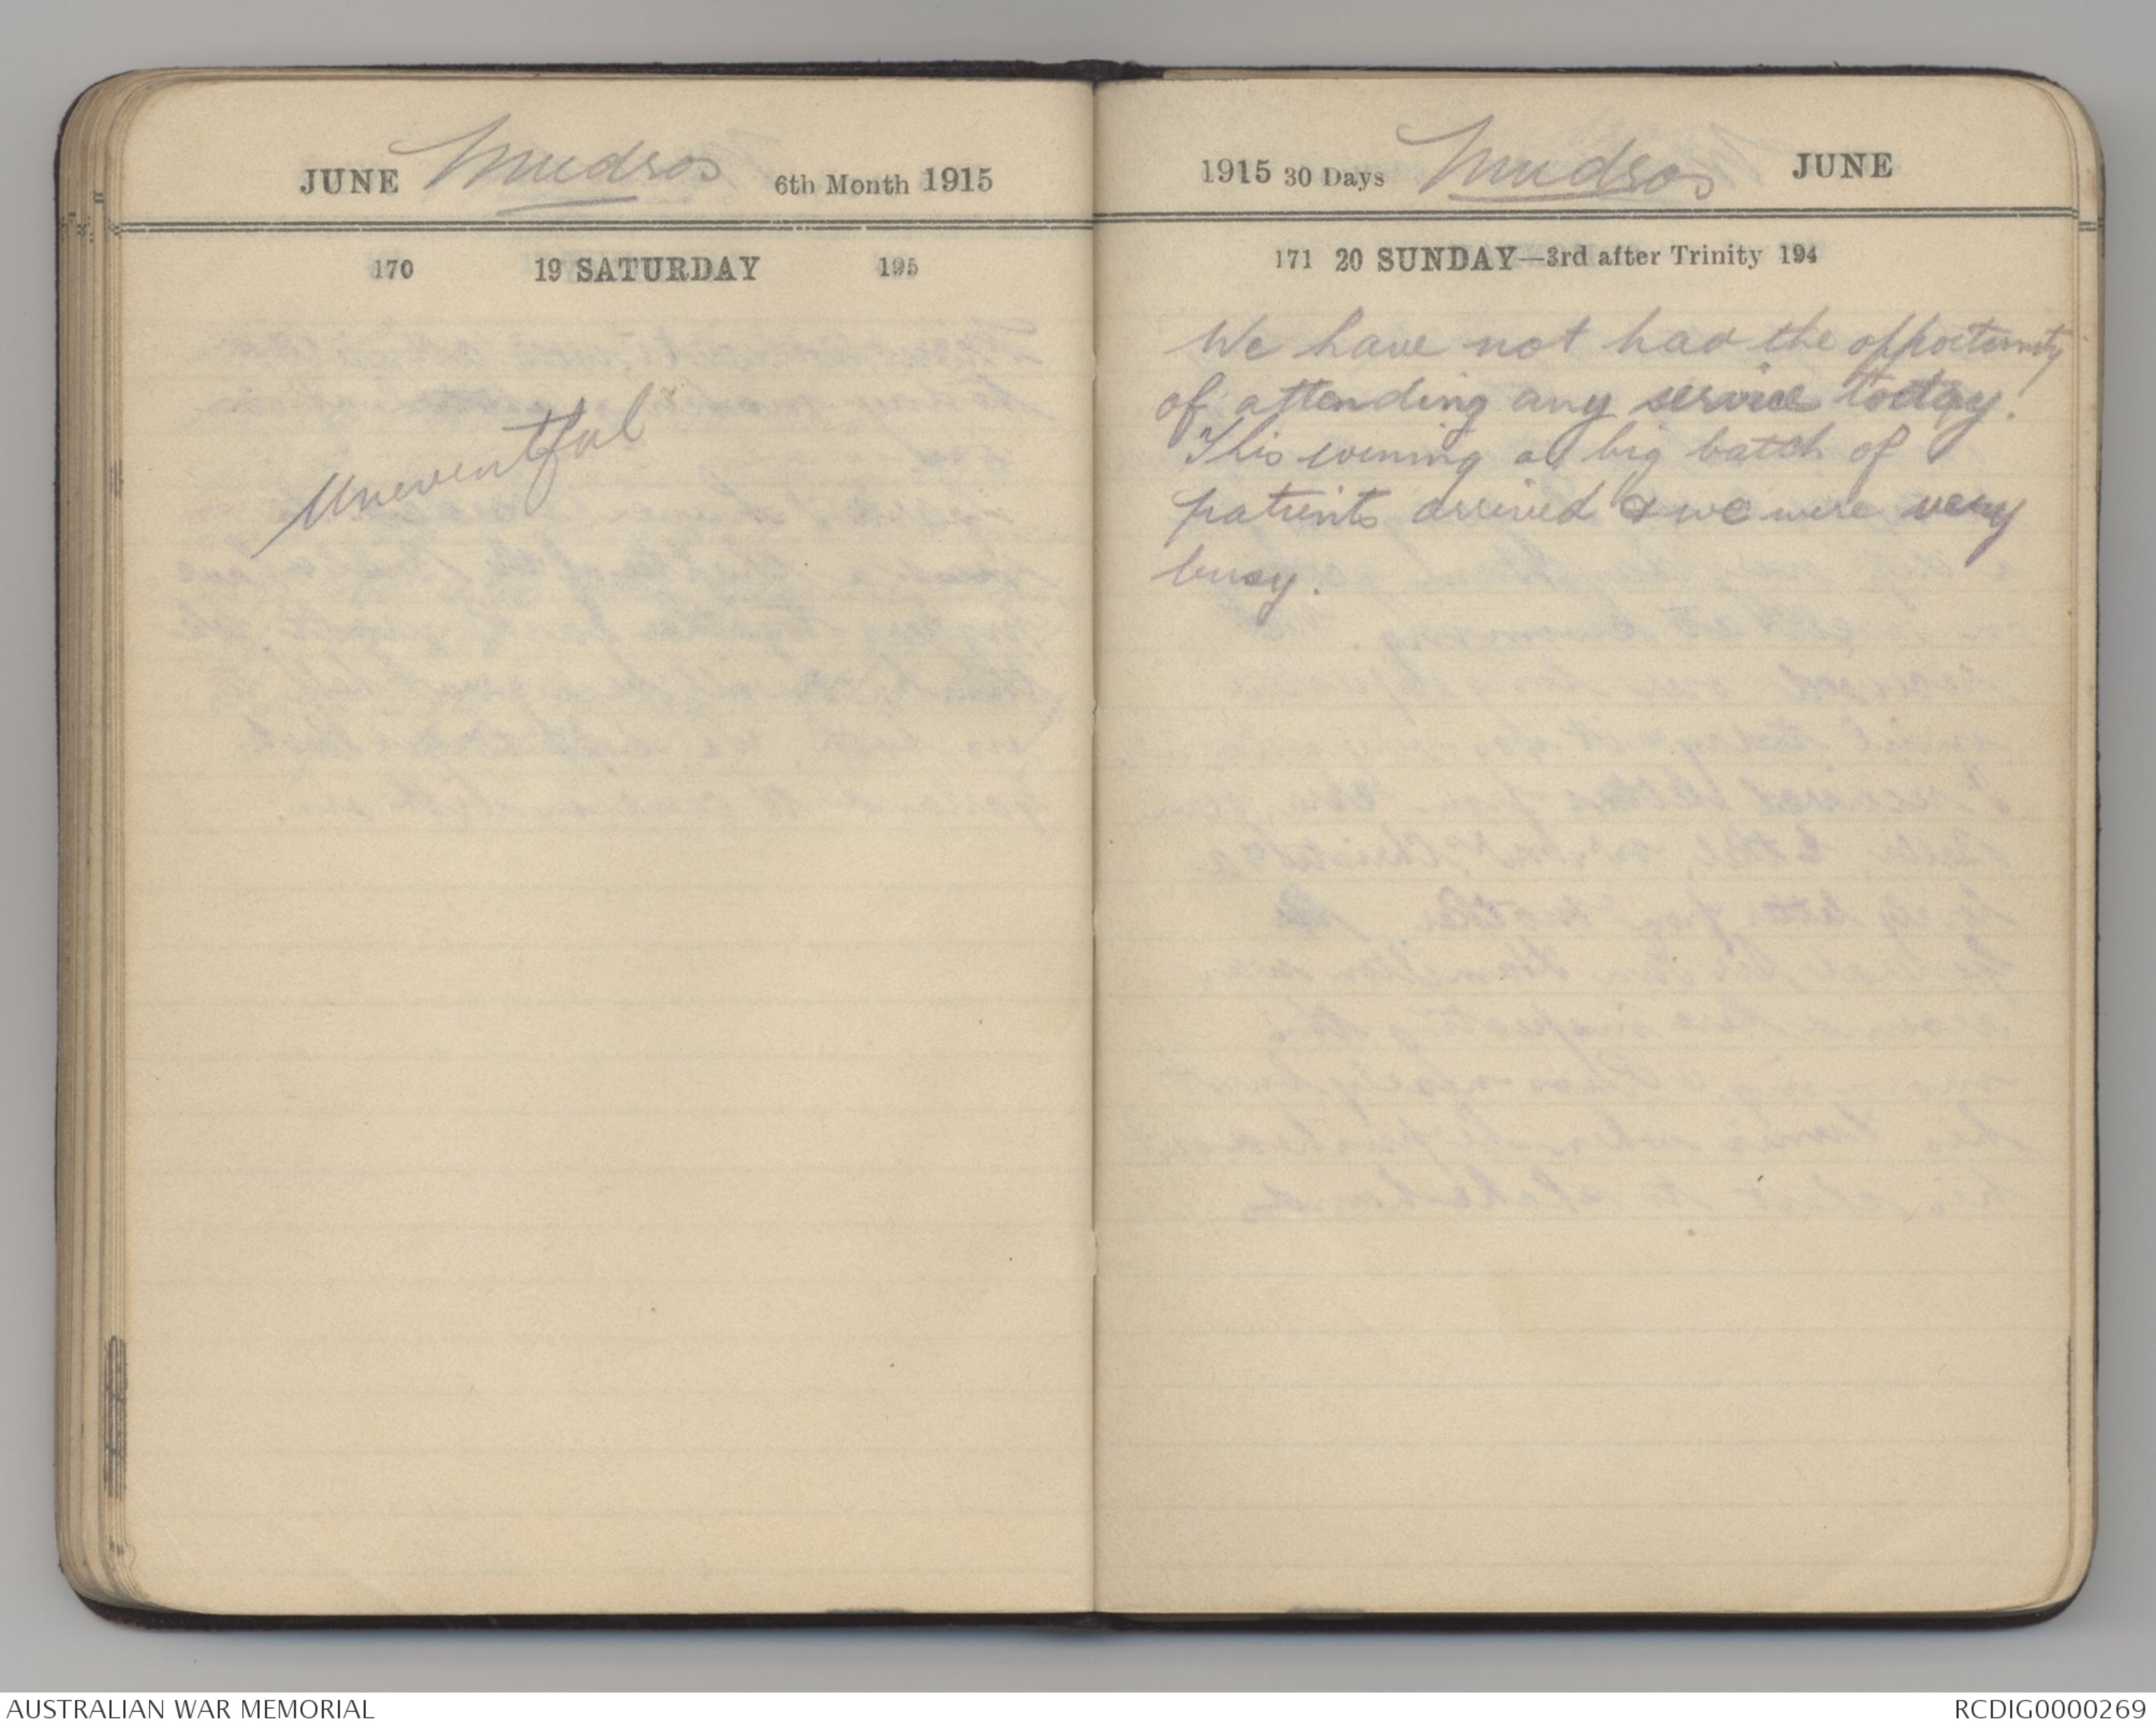 JUNE Mudros 6th Month 1915
170 19 SATURDAY 195
Uneventful
1915 30 Days Mudros JUNE
171 20 SUNDAY—3rd after Trinity 194
We have not had the opportunity
of attending any service today.
This evening a big batch of
patients arrived & we were very
busy.
AUSTRALIAN WAR MEMORIAL
RCDIG0000269